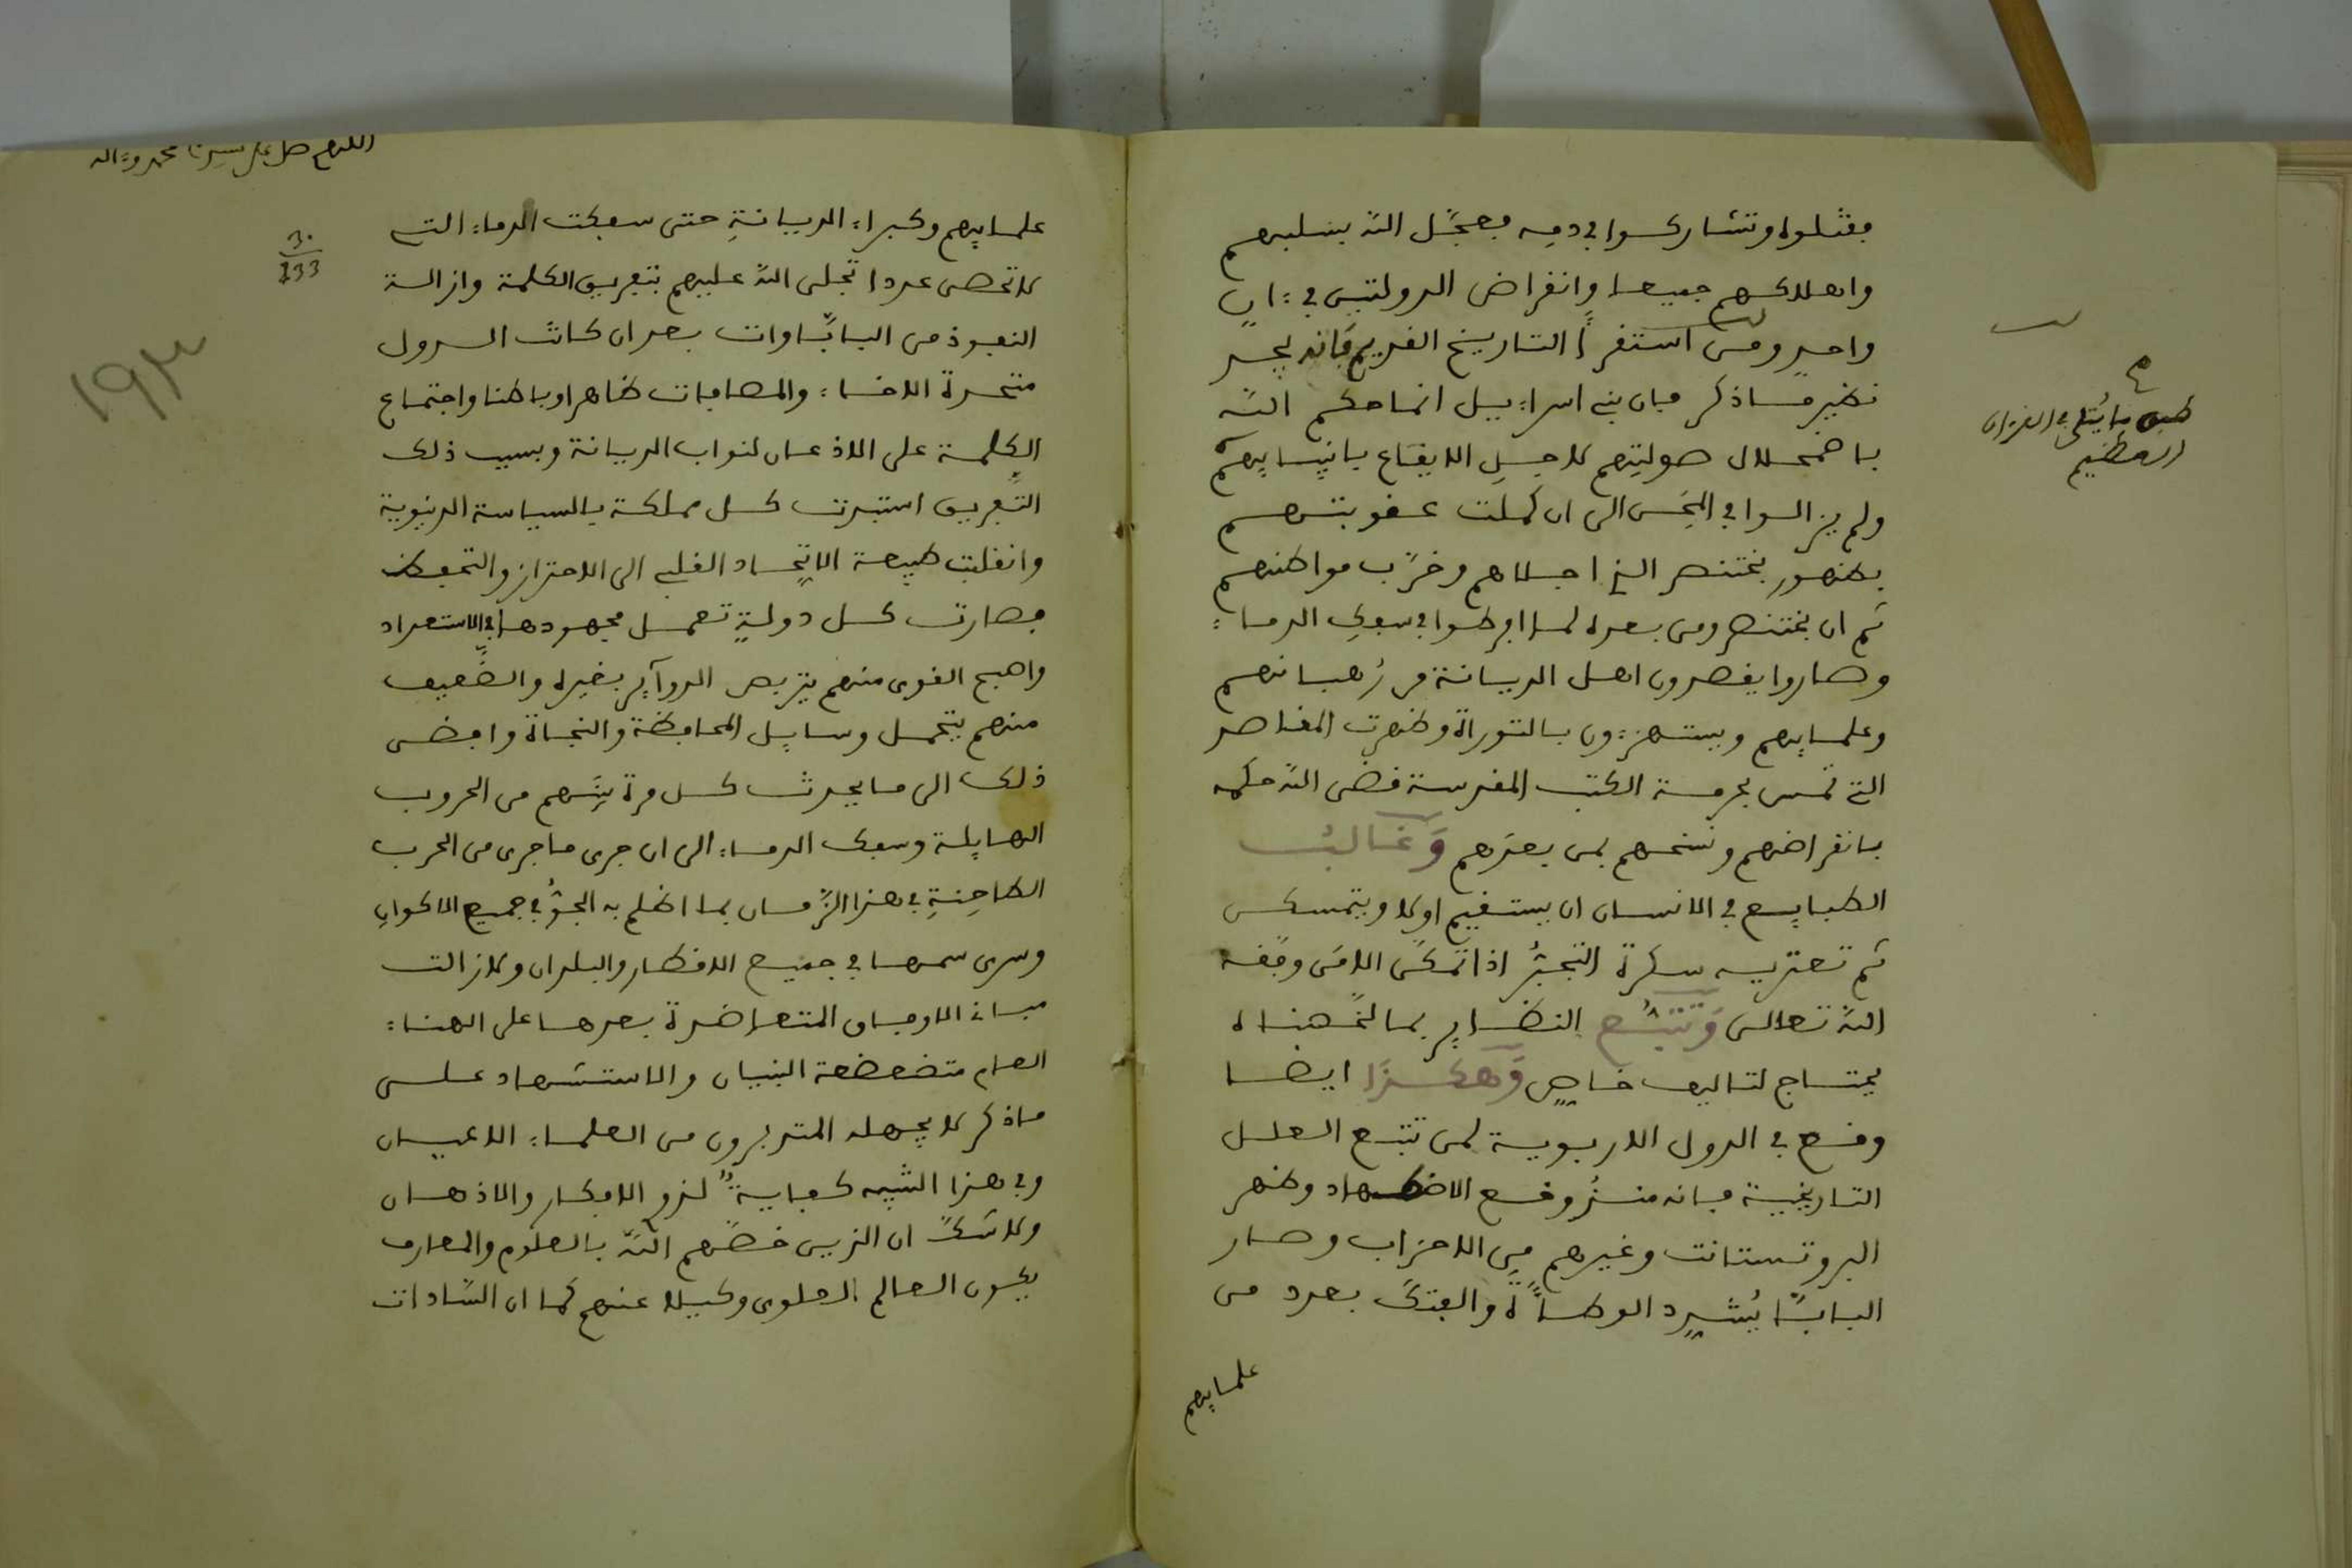 فقتلوه وتشاركوا في دمه فعجّل الله بسلبهم
واهلاكهم جميعا وانقراض الدولتين في ءان
واحد ومن استقرأ التاريخ القديم فانه يجد
نظير ما ذكر فان بني اسراءيل انما حكم الله
باضمحلال صولتهم لاجل الايقاع بانبيايهم
ولم يزالوا في المحن الى ان كملت عقوبتهم
بظهور بختنصر الذي اجلاهم وخرّب مواطنهم
ثم ان بختنصر ومن بعده لما افرطوا في سفك الدماء
وصاروا يقصدون اهل الديانة من رُهبانهم
وعلمايهم ويستهزءون بالتوراة وظهرت المقاصد
التي تمس بحرمة الكتب المقدسة قضى الله حكمه
بانقراضهم ونسخهم بمن بعدهم وَغالبُ
الطبايع في الانسان ان يستقيم اولا ويتمسكن
ثم تعتريه سكرة التجبّر اذا تمكّن الامن وفقه
الله تعالى وَتتبُّع النظاير بما لخّصناه
يحتاج لتاليف خاص وَهكذا ايضا
وقع في الدول الاروبوية لمن تتبع العلل
التاريخية فانه منذُ وقع الاضطهاد وظهر
البروتستانت وغيرهم مِن الاحزاب وصار
البابّا يُشدِد الوطأة والفتك بعدد من
علمايهم
طبق ما يُتلى في القرءان
العظيم
اللهم صل على سيدنا محمد وءاله
30
233
١٩٣
علمايهم وكبراء الديانةِ حتى سفكت الدماء التي
لا تحصى عددا تجلى الله عليهم بتفريق الكلمة وازالة
النفوذ من البابّاوات بعد ان كانت الدول
متحدة الاخاء والمصافات ظاهرا وباطنا واجتماع
الكلمة على الاذعان لنواب الديانة وبسبب ذلك
التّفريق استبدت كل مملكة بالسياسة الدنيوية
وانقلبت طبيعة الاتّحاد القلبي الى الاحتراز والتحفظ
فصارت كل دولةٍ تعمل مجهودها في الاستعداد
واصبح القوى منهم يتربص الدوآير بغيره والضّعيف
منهم يتحمل وسايل المحافظة والنجاة وافضى
ذلك الى ما يحدث كل مرة بينهم من الحروب
الهايلة وسفك الدماء الى ان جرى ما جرى من الحرب
الطاحِنةِ في هذا الزّمان بما اظلم به الجوُّ في جميع الاكوان
وسرى سمها في جميع الاقطار والبلدان ولازالت
مبانى الاوفاق المتعاضدة بعدها على الهناء
العام متضعضعة البنيان والاستشهاد على
ما ذكر لا يجهله المتدبرون من العلماء الاعيان
وفي هذا الشبه كفايةٌ لذو الافكار والاذهان
ولا شكّ ان الذين خصّهم اللّه بالعلوم والمعارف
يكون العالم العلوى وكيلا عنهم كما ان السّادات